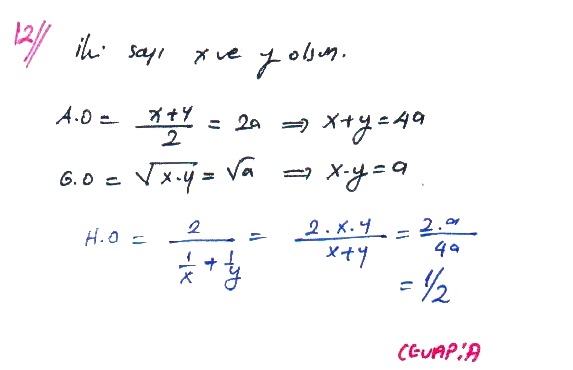 12//
iki sayı x ve y olsun.
A.O = x+y/2 = 2a ⇒ x+y=4a
G.O = √x.y = √a ⇒ x.y=a
H.O = 2/(1/x + 1/y) = 2.x.y/x+y = 2.a/4a
= 1/2
CEVAP:A